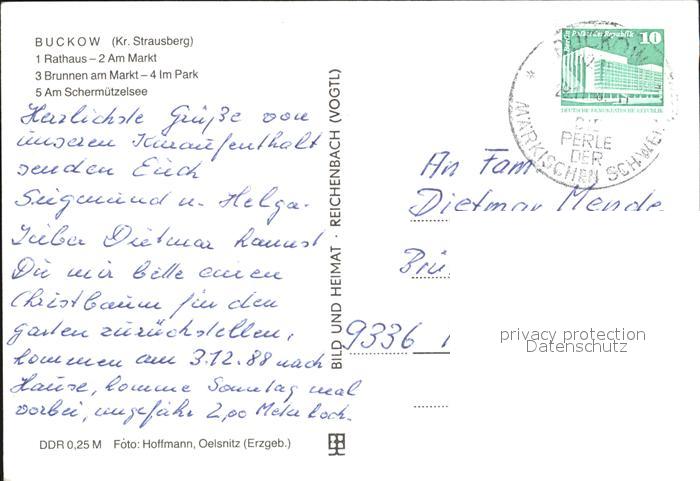 BUCKOW (Kr. Strausberg)
1 Rathaus – 2 Am Markt
3 Brunnen am Markt – 4 Im Park
5 Am Schermützelsee
Herzlichste Grüße von
unseren Kuraufenthalt
senden Euch
Siegmund u. Helga.
Lieber Dietmar kannst
Du mir bitte einen
Christbaum für den
garten zurückstellen,
kommen am 3.12.88 nach
Hause, komme Sonntag mal
vorbei, ungefähr 2,00 Meter hoch.
DDR 0,25 M Foto: Hoffmann, Oelsnitz (Erzgeb.)
BILD UND HEIMAT · REICHENBACH (VOGTL)
Berlin Palast der Republik
10
DEUTSCHE DEMOKRATISCHE REPUBLIK
BUCKOW
DIE
PERLE
DER
MÄRKISCHEN SCHWEIZ
An Fam
Dietmar Mende
Brü
9336
privacy protection
Datenschutz